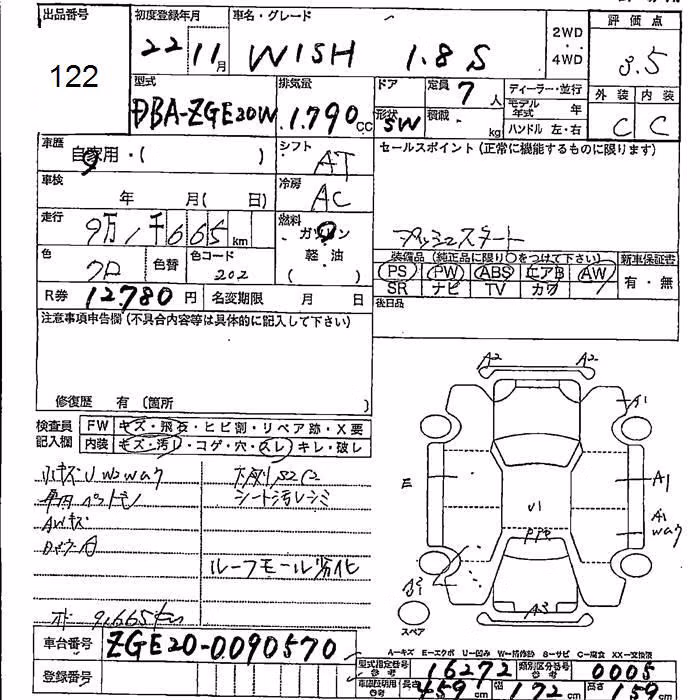 出品番号
122
初度登録年月
22 11月
車名・グレード
WISH 1.8S
2WD
4WD
評価点
3.5
外装 内装
C C
型式
DBA-ZGE20W
排気量
1.790cc
ドア
形状
SW
定員 7人
積載 kg
ディーラー・並行
モデル年式 年
ハンドル 左・右
車歴
自家用・( )
シフト
AT
セールスポイント (正常に機能するものに限ります)
プッシュスタート
車検
年 月( 日)
冷房
AC
走行
9万1千665km
燃料
ガソリン
軽・油
( )
色
クロ
色替
色コード
202
装備品 (純正品に限り○をつけて下さい)
PS PW ABS エアB AW
SR ナビ TV カワ
新車保証書
有・無
後日品
R券 12780円
名変期限 月 日
注意事項申告欄 (不具合内容等は具体的に記入して下さい)
修復歴 有 (箇所 )
検査員
記入欄
FW キズ・飛石・ヒビ割・リペア跡・X要
内装 キズ・汚レ・コゲ・穴・スレ・キレ・破レ
小キズUW2wax
AWキズ
シート汚レシミ
ルーフモール劣化
A2 A2
A1
E
U1
A1
A1
wax
A3
スペア
A-キズ E-エクボ U-凹み W-補修跡 S-サビ C-腐食 XX-交換済
車台番号 ZGE20-0090570
登録番号
型式指定番号
参考
16272
類別区分番号
参考
0005
車検証明用
参考
長さ 459cm 幅 172cm 高さ 59cm